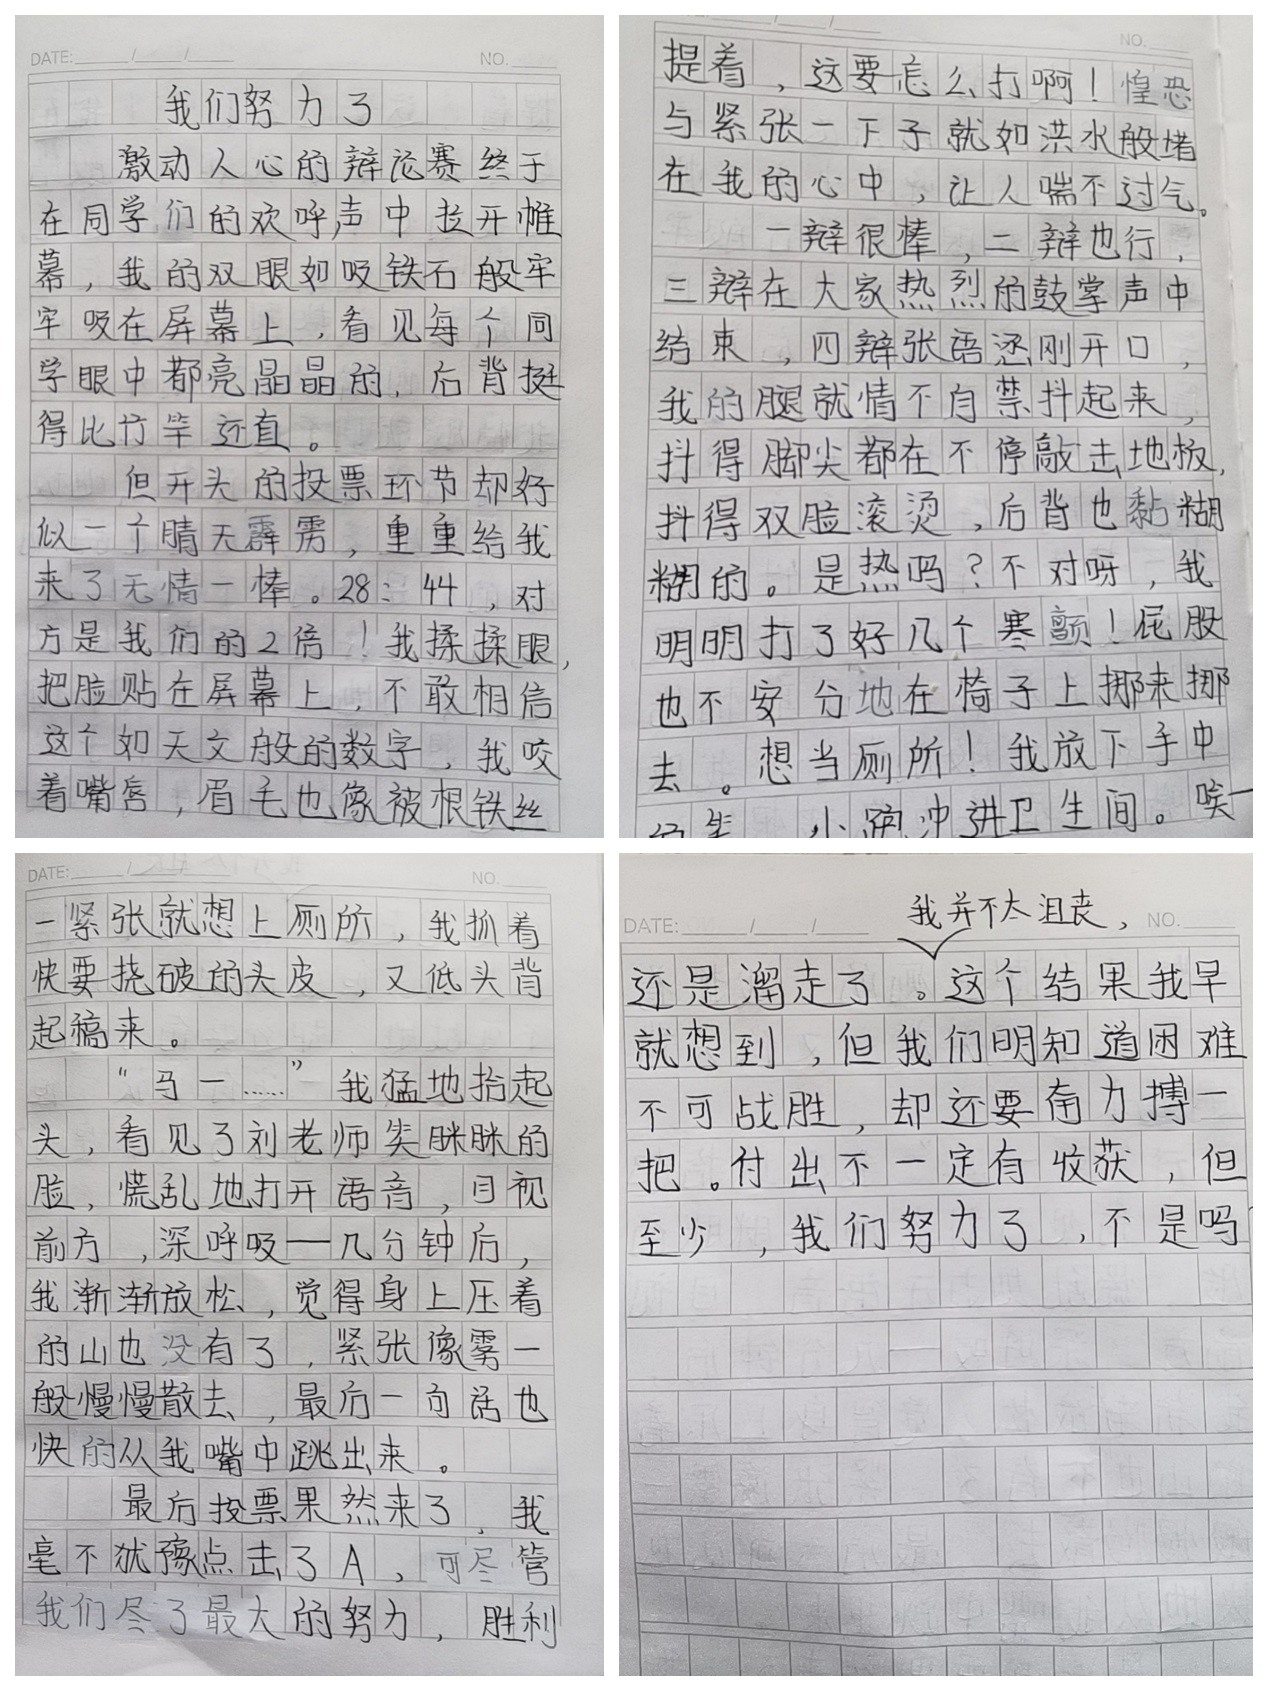 DATE: / / NO.
我们努力了
激动人心的辩论赛终于
在同学们的欢呼声中拉开帷
幕，我的双眼如吸铁石般牢
牢吸在屏幕上，看见每个同
学眼中都亮晶晶的，后背挺
得比竹竿还直。
但开头的投票环节却好
似一个晴天霹雳，重重给我
来了无情一棒。28：44，对
方是我们的2倍！我揉揉眼，
把脸贴在屏幕上，不敢相信
这个如天文般的数字，我咬
着嘴唇，眉毛也像被根铁丝
NO.
提着，这要怎么打啊！惶恐
与紧张一下子就如洪水般堵
在我的心中，让人喘不过气。
一辩很棒，二辩也行，
三辩在大家热烈的鼓掌声中
结束，四辩张语还刚开口，
我的腿就情不自禁抖起来，
抖得脚尖都在不停敲击地板，
抖得双脸滚烫，后背也黏糊
糊的。是热吗？不对呀，我
明明打了好几个寒颤！屁股
也不安分地在椅子上挪来挪
去。想当厕所！我放下手中
，小跑冲进卫生间。唉一
DATE: / / NO.
一紧张就想上厕所，我抓着
快要挠破的头皮，又低头背
起稿来。
“马一……”我猛地抬起
头，看见了刘老师笑眯眯的
脸，慌乱地打开语音，目视
前方，深呼吸——几分钟后，
我渐渐放松，觉得身上压着
的山也没有了，紧张像雾一
般慢慢散去，最后一句话也
快的从我嘴中跳出来。
最后投票果然来了，我
毫不犹豫点击了A，可尽管
我们尽了最大的努力，胜利
我并不太沮丧，
DATE: / / NO.
还是溜走了。这个结果我早
就想到，但我们明知道困难
不可战胜，却还要奋力搏一
把。付出不一定有收获，但
至少，我们努力了，不是吗